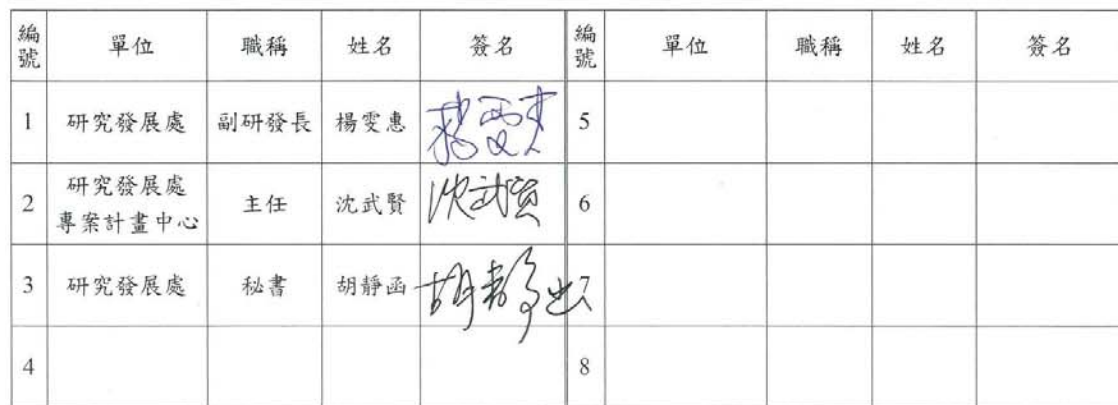 編號 單位 職稱 姓名 簽名 編號 單位 職稱 姓名 簽名
1 研究發展處 副研發長 楊雯惠 楊雯惠 5
2 研究發展處 專案計畫中心 主任 沈武賢 沈武賢 6
3 研究發展處 秘書 胡靜函 胡靜函 7
4 8